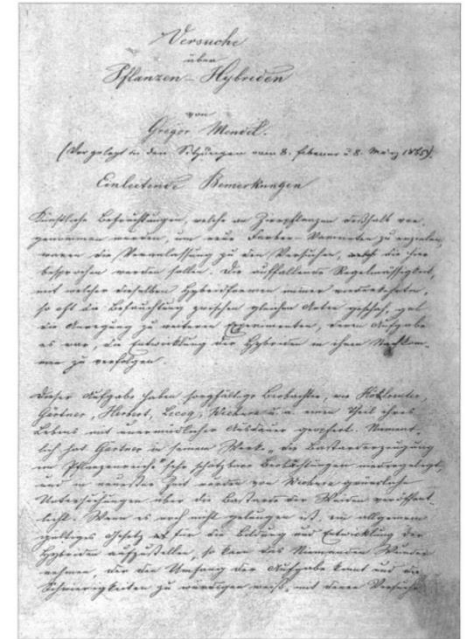 Versuche
über
Pflanzen-Hybriden
von
Gregor Mendel.
(Vorgelegt in den Sitzungen vom 8. Februar u. 8. März 1865).
Einleitende Bemerkungen
Künstliche Befruchtungen, welche an Zierpflanzen deßhalb vor-
genommen wurden, um neue Farben-Varianten zu erzielen,
waren die Veranlassung zu den Versuchen, die hier
besprochen werden sollen. Die auffallende Regelmässigkeit,
mit welcher dieselben Hybridformen immer wiederkehrten,
so oft die Befruchtung zwischen gleichen Arten geschah, gab
die Anregung zu weiteren Experimenten, deren Aufgabe
es war, die Entwicklung der Hybriden in ihren Nachkom-
men zu verfolgen.
Dieser Aufgabe haben sorgfältige Beobachter, wie Kölreuter,
Gärtner, Herbert, Lecoq, Wichura u. a. einen Theil ihres
Lebens mit unermüdlicher Ausdauer geopfert. Nament-
lich hat Gärtner in seinem Werke „die Bastarderzeugung
im Pflanzenreiche" sehr schätzbare Beobachtungen niedergelegt,
und in neuester Zeit wurden von Wichura gründliche
Untersuchungen über die Bastarde der Weiden veröffent-
licht. Wenn es noch nicht gelungen ist, ein allgemein
giltiges Gesetz für die Bildung und Entwicklung der
Hybriden aufzustellen, so kann das Niemanden Wunder
nehmen, der den Umfang der Aufgabe kennt und die
Schwierigkeiten zu würdigen weiß, mit denen Versuche